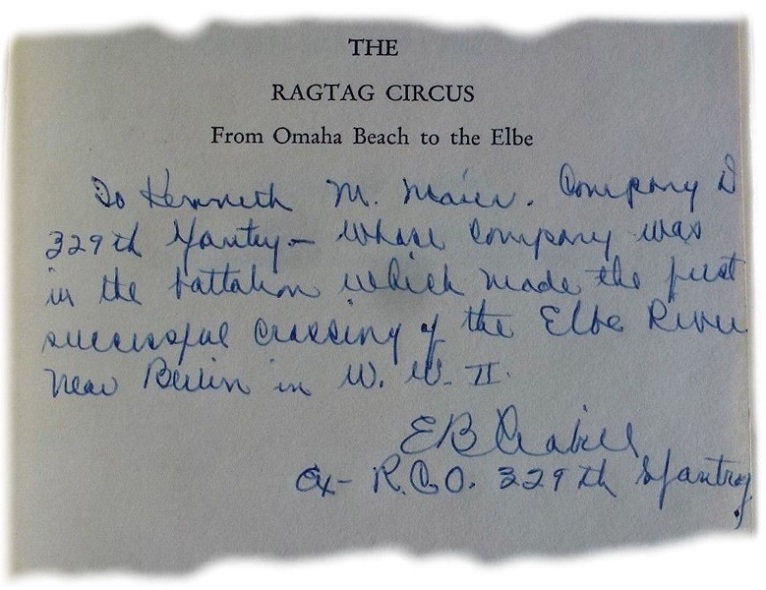 THE
RAGTAG CIRCUS
From Omaha Beach to the Elbe
To Kenneth M. Maier. Company D
329th Infantry – whose company was
in the battalion which made the first
successful crossing of the Elbe River
near Berlin in W. W. II.
EB Crabill
Ex- R.C.O. 329th Infantry